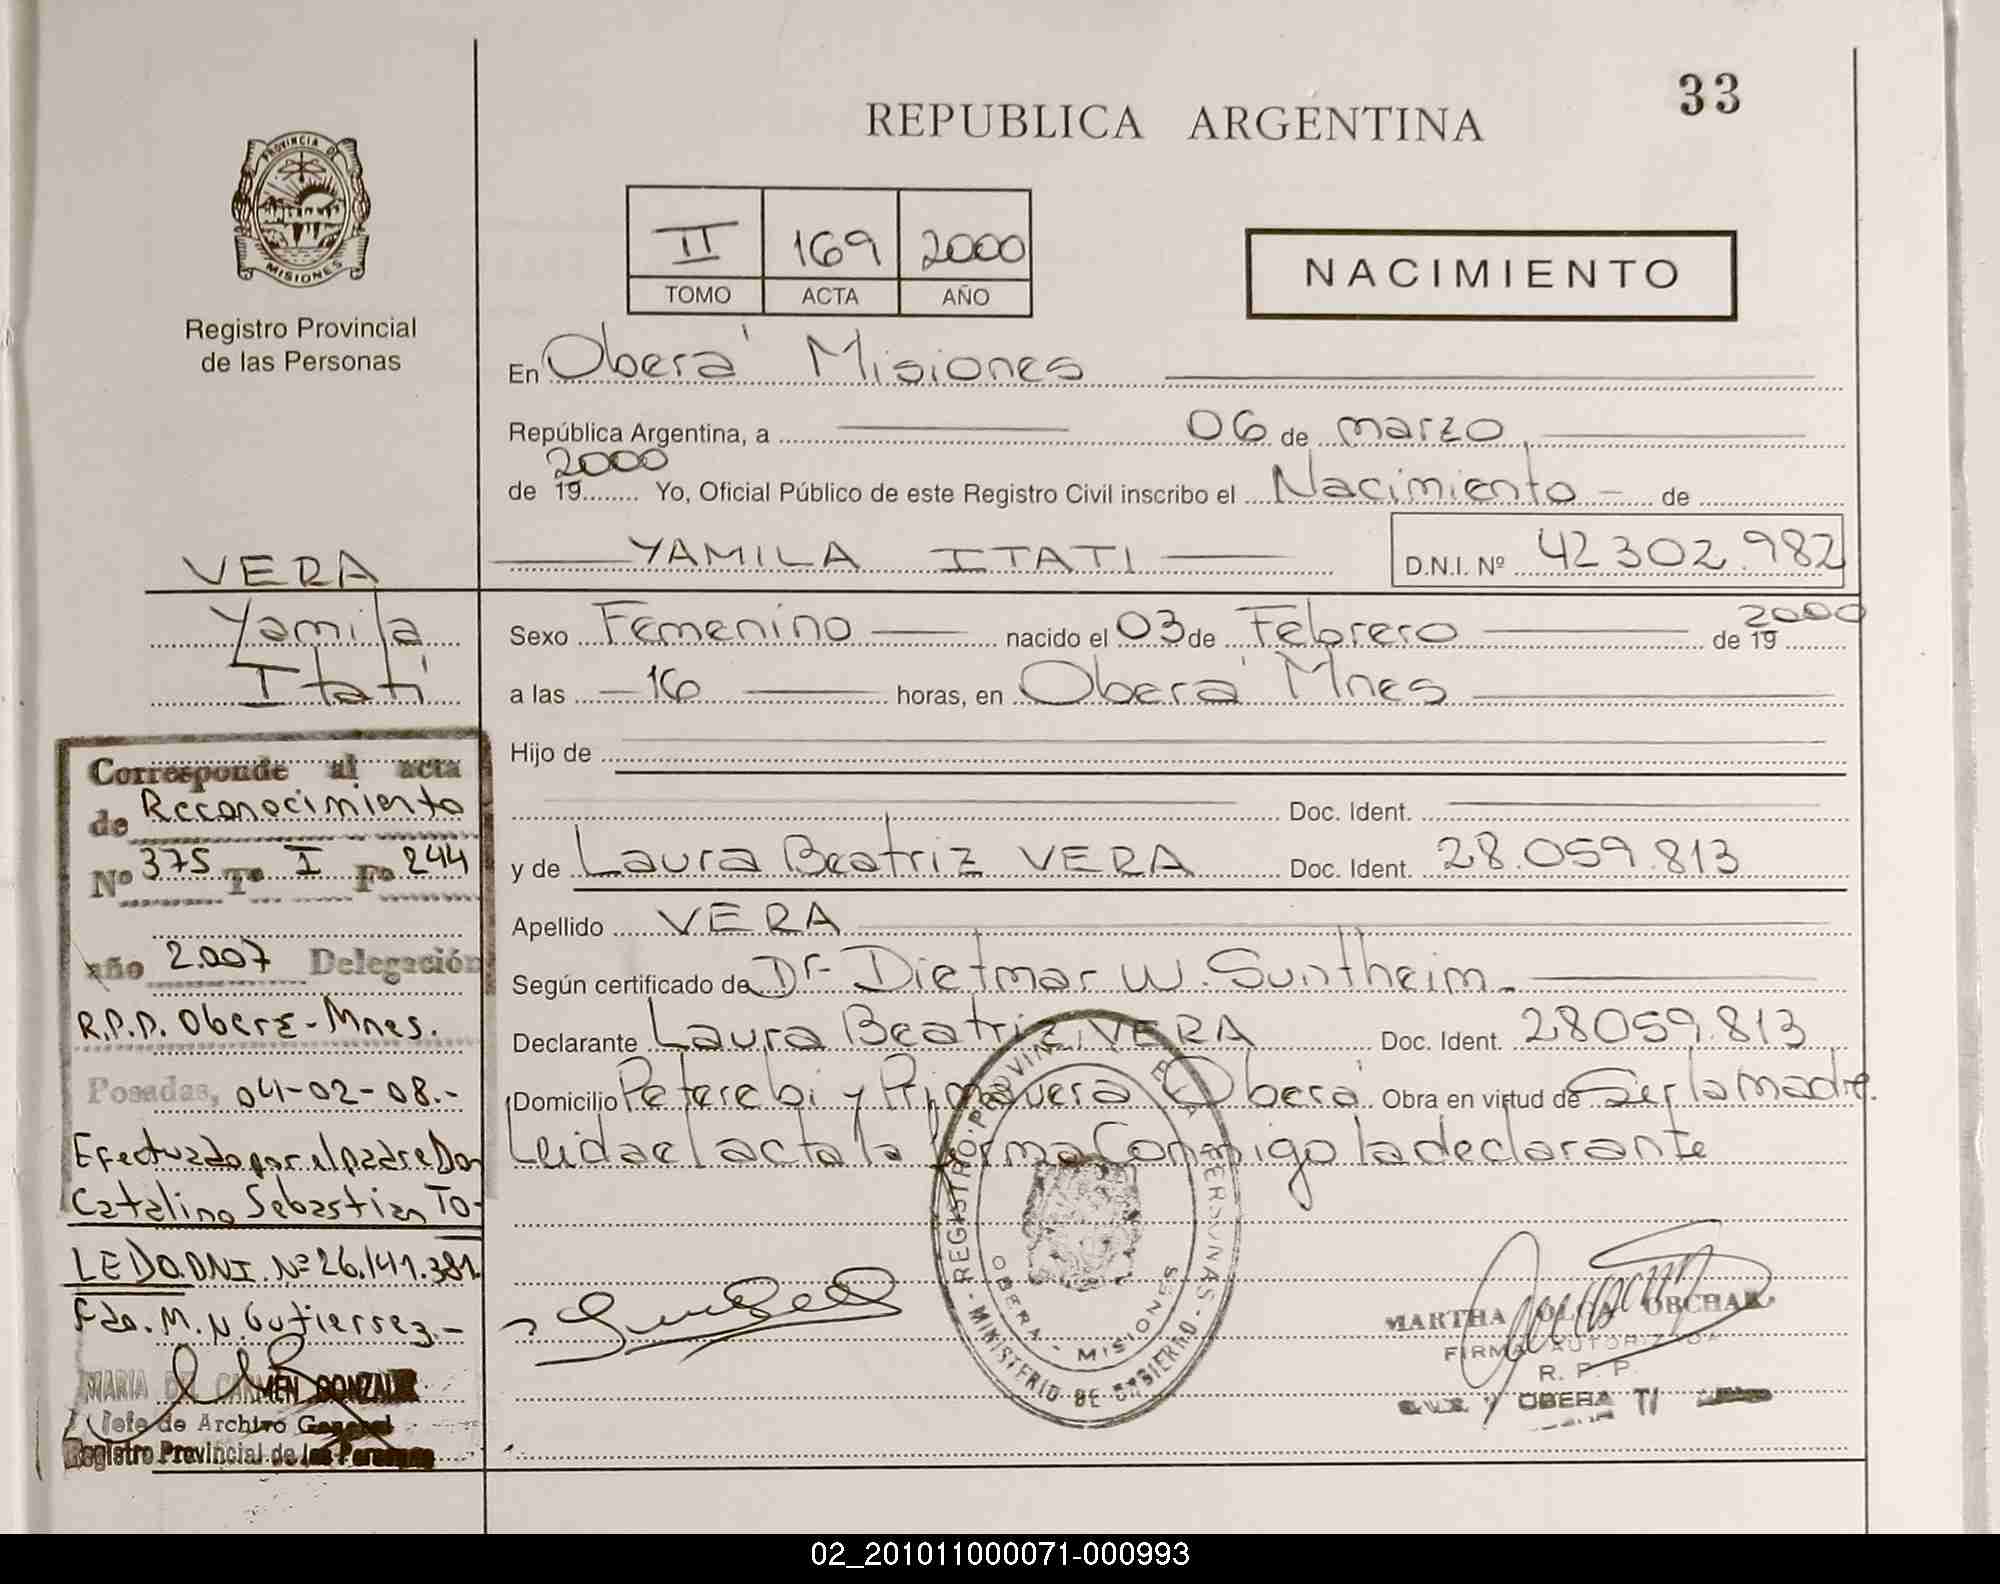 33
REPUBLICA ARGENTINA
PROVINCIA DE
MISIONES
Registro Provincial
de las Personas
II 169 2000
TOMO ACTA AÑO
NACIMIENTO
En Oberá Misiones
República Argentina, a 06 de marzo
2000
de 19 Yo, Oficial Público de este Registro Civil inscribo el Nacimiento - de
YAMILA ITATI D.N.I. Nº 42302.982
Sexo Femenino nacido el 03 de Febrero de 19 2000
a las 16 horas, en Oberá Mnes
Hijo de
Doc. Ident.
y de Laura Beatriz VERA Doc. Ident. 28.059.813
Apellido VERA
Según certificado de Dr. Dietmar W. Suntheim.
Declarante Laura Beatriz VERA Doc. Ident. 28059.813
Domicilio Peterebi y Primavera Oberá Obra en virtud de Ser la Madre.
Leida el acta la firma Conmigo la declarante
VERA
Yamila
Itatí
Corresponde al acta
de Reconocimiento
Nº 375 Tº I Fº 244
año 2.007 Delegación
R.P.P. Oberá - Mnes.
Posadas, 04-02-08.-
Efectuado por el padre Don
Catalino Sebastian TO-
LEDO.DNI.Nº 26.141.381
Fdo. M. N. Gutierrez.-
MARIA DEL CARMEN GONZALEZ
Jefe de Archivo General
Registro Provincial de las Personas
REGISTRO PROVINCIAL DE LAS PERSONAS
OBERA - MISIONES
- MINISTERIO DE GOBIERNO -
MARTHA OLGA OBCHAK
FIRMA AUTORIZADA
R. P. P.
OBERA
02_201011000071-000993